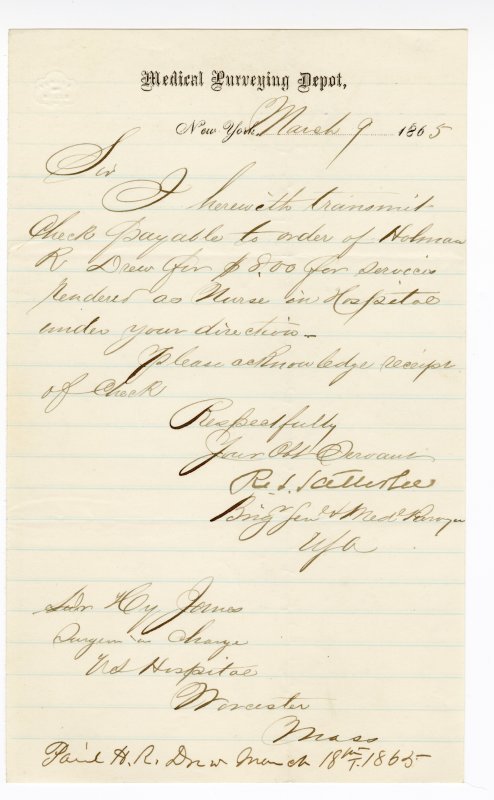 Medical Purveying Depot,
New York, March 9 1865
Sir
I herewith transmit
Check payable to order of Holman
R Drew for $8.00 for services
rendered as Nurse in Hospital
under your direction_
Please acknowledge receipt
of Check
Respectfully
Your Obt Servant
R. S. Satterlee
Brigr Genl & Medl Purveyor
USA
Hy Janes
Surgeon in Charge
Hospital
Worcester
Mass
Paid H. R. Drew March 18th 1865